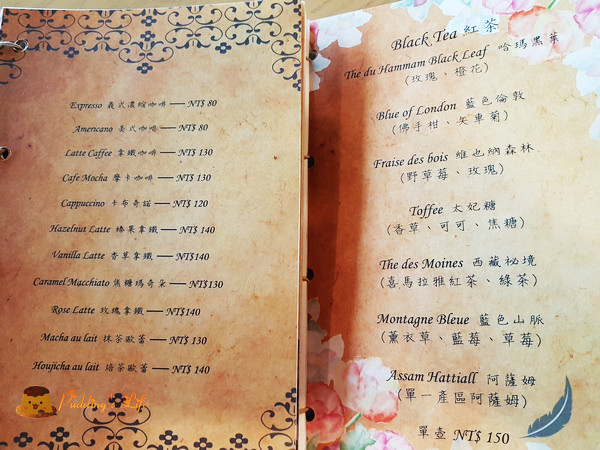 Expresso 義式濃縮咖啡 — NT$ 80
Americano 美式咖啡 — NT$ 80
Latte Caffee 拿鐵咖啡 — NT$ 130
Cafe Mocha 摩卡咖啡 — NT$ 130
Cappuccino 卡布奇諾 — NT$ 120
Hazelnut Latte 榛果拿鐵 — NT$140
Vanilla Latte 香草拿鐵 — NT$140
Caramel Macchiato 焦糖瑪奇朵 — NT$130
Rose Latte 玫瑰拿鐵 — NT$140
Macha au lait 抹茶歐蕾 — NT$ 130
Houjicha au lait 焙茶歐蕾 — NT$ 140
Pudding Life
Black Tea 紅茶
The du Hammam Black Leaf 哈瑪黑葉
(玫瑰、橙花)
Blue of London 藍色倫敦
(佛手柑、矢車菊)
Fraise des bois 維也納森林
(野草莓、玫瑰)
Toffee 太妃糖
(香草、可可、焦糖)
The des Moines 西藏祕境
(喜馬拉雅紅茶、綠茶)
Montagne Bleue 藍色山脈
(薰衣草、藍莓、草莓)
Assam Hattiall 阿薩姆
(單一產區阿薩姆)
單壺 NT$ 150